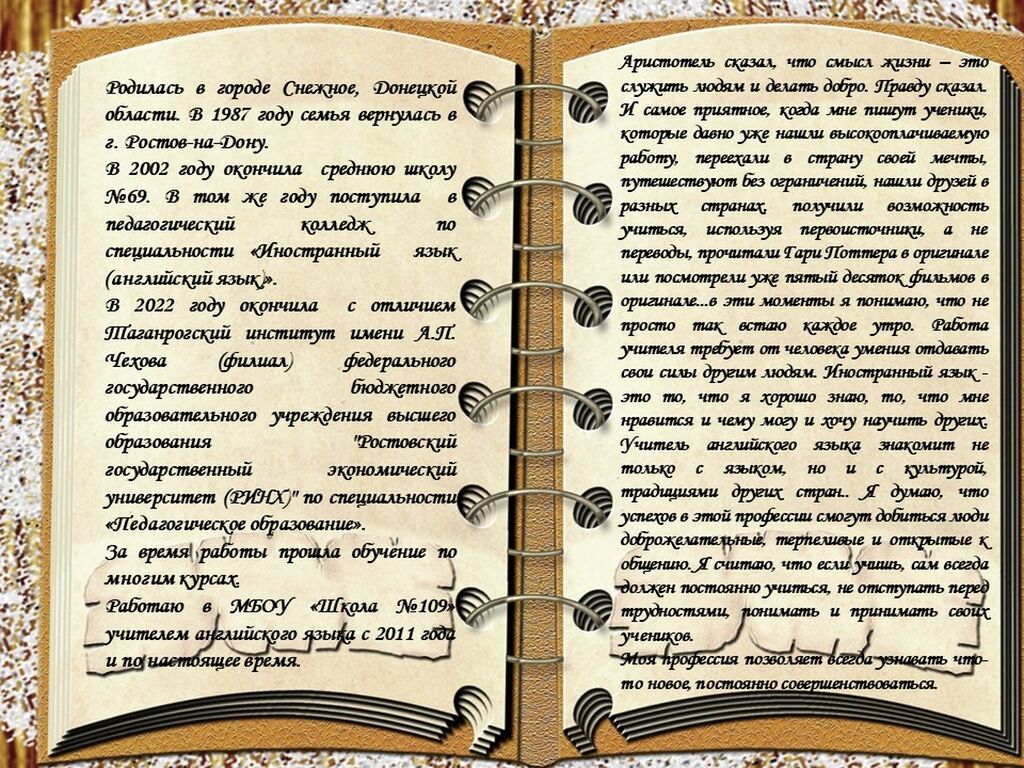 Родилась в городе Снежное, Донецкой
области. В 1987 году семья вернулась в
г. Ростов-на-Дону.
В 2002 году окончила среднюю школу
№69. В том же году поступила в
педагогический колледж по
специальности «Иностранный язык
(английский язык)».
В 2022 году окончила с отличием
Таганрогский институт имени А.П.
Чехова (филиал) федерального
государственного бюджетного
образовательного учреждения высшего
образования "Ростовский
государственный экономический
университет (РИНХ)" по специальности
«Педагогическое образование».
За время работы прошла обучение по
многим курсах.
Работаю в МБОУ «Школа №109»
учителем английского языка с 2011 года
и по настоящее время.
Аристотель сказал, что смысл жизни – это
служить людям и делать добро. Правду сказал.
И самое приятное, когда мне пишут ученики,
которые давно уже нашли высокооплачиваемую
работу, переехали в страну своей мечты,
путешествуют без ограничений, нашли друзей в
разных странах, получили возможность
учиться, используя первоисточники, а не
переводы, прочитали Гари Поттера в оригинале
или посмотрели уже пятый десяток фильмов в
оригинале...в эти моменты я понимаю, что не
просто так встаю каждое утро. Работа
учителя требует от человека умения отдавать
свои силы другим людям. Иностранный язык -
это то, что я хорошо знаю, то, что мне
нравится и чему могу и хочу научить других.
Учитель английского языка знакомит не
только с языком, но и с культурой,
традициями других стран.. Я думаю, что
успехов в этой профессии смогут добиться люди
доброжелательные, терпеливые и открытые к
общению. Я считаю, что если учишь, сам всегда
должен постоянно учиться, не отступать перед
трудностями, понимать и принимать своих
учеников.
Моя профессия позволяет всегда узнавать что-
то новое, постоянно совершенствоваться.